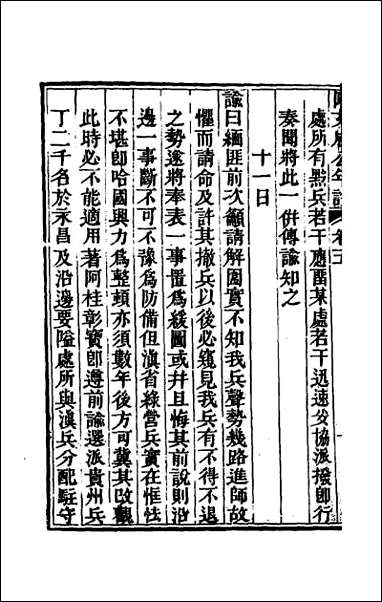 阿文成公年譜 卷五
處所有黔兵若干應留某處若干迅速妥協派撥卽行
奏聞將此一併傳諭知之
十一日
諭曰緬匪前次籲請解圍實不知我兵聲勢幾路進師故
懼而請命及許其撤兵以後必窺見我兵有不得不退
之勢遂將奉表一事置爲緩圖或并且悔其前說則沿
邊一事斷不可不豫爲防備但滇省綠營兵實在恇怯
不堪卽哈國興力爲整頓亦須數年後方可冀其改觀
此時必不能適用著阿桂彰寶卽遵前諭選派貴州兵
丁二千名於永昌及沿邊要隘處所與滇兵分配駐守